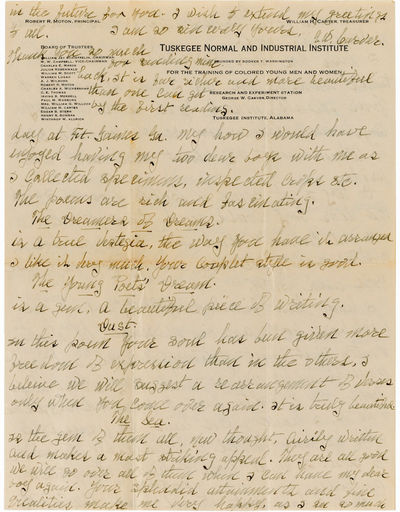 in the future for you. I wish to extend my greetings
to all. I am so sincerely yours,
G.W. Carver.
ROBERT R. MOTON, PRINCIPAL
WILLIAM H. CARTER, TREASURER
TUSKEGEE NORMAL AND INDUSTRIAL INSTITUTE
FOUNDED BY BOOKER T. WASHINGTON
FOR THE TRAINING OF COLORED YOUNG MEN AND WOMEN
RESEARCH AND EXPERIMENT STATION
GEORGE W. CARVER, DIRECTOR
TUSKEGEE INSTITUTE, ALABAMA
BOARD OF TRUSTEES
W. W. CAMPBELL, VICE-CHAIRMAN
CHARLES E. MASON
so much
for
it is far richer and more beautiful
than one can get
by the first reading.
day at Ft. Gaines Ga. My how I would have
enjoyed having my two dear boys with me as
I collected specimens, inspected crops etc.
The poems are rich and fascinating.
The Dreamers of Dreams.
is a true the way you have it arranged
I like it very much. Your couplet style is good.
The Young Poets' Dream.
is a gem, a beautiful piece of writing.
Dust.
in this poem your soul has been given more
freedom of expression than in the others, I
believe we will suggest a rearrangement of
only when you come over again. It is truly beautiful
The Sea.
is the gem of them all, new thought, airily written
and makes a most striking appeal. They are all good
we will go over all of them when I can have my dear
boy again. Your splendid attainments and fine
qualities make me very happy, as I am so much